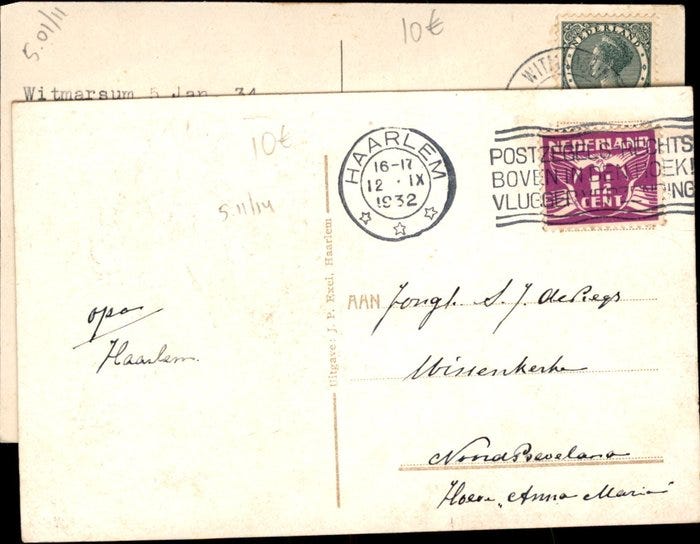 5.01/11
10€
NEDERLAND
WITM
Witmarsum 5 Jan. 34
10€
5.11/14
HAARLEM
16-17
12 · IX
1932
POSTZEGEL RECHTS
BOVEN IN DEN HOEK!
VLUGGER
NEDERLAND
1½
CENT
opa
Haarlem.
Uitgave: J. P. Exel, Haarlem
AAN Jongh. S. J. de Regs
Wissenkerke
Noord Beveland
Hoeve "Anna Maria"